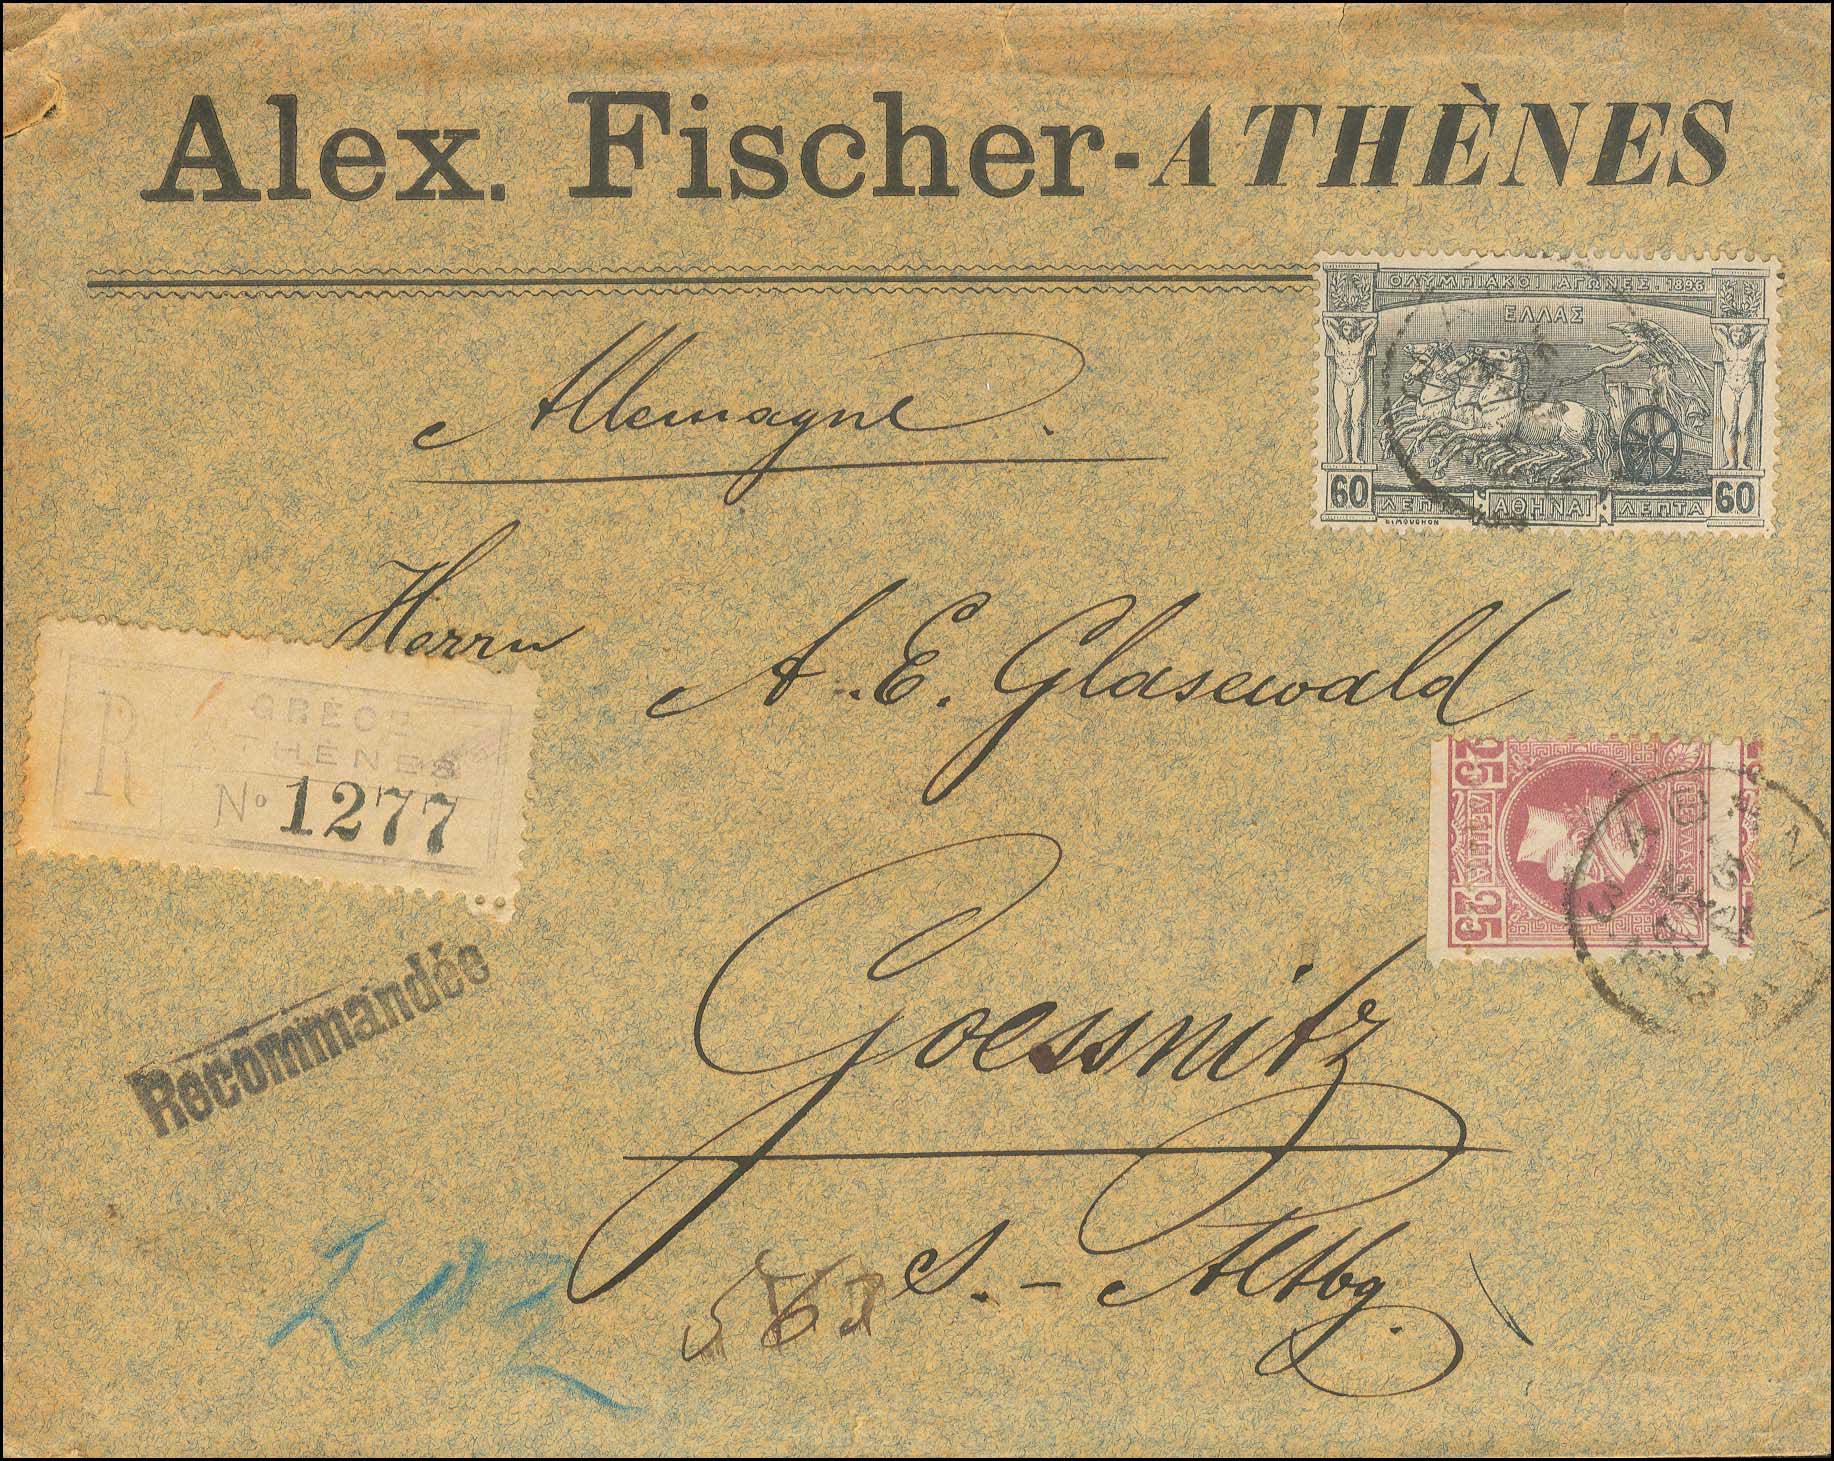 Alex. Fischer-ATHÈNES
ΟΛΥΜΠΙΑΚΟΙ ΑΓΩΝΕΣ. 1896
ΕΛΛΑΣ
60 ΛΕΠΤΑ ΑΘΗΝΑΙ ΛΕΠΤΑ 60
L. MOUCHON
Allemagne.
Herrn A. E. Glasewald
R GRÈCE
ATHÈNES
No 1277
25 ΛΕΠΤΑ 25
Recommandée
Goessnitz
S.-Altbg.